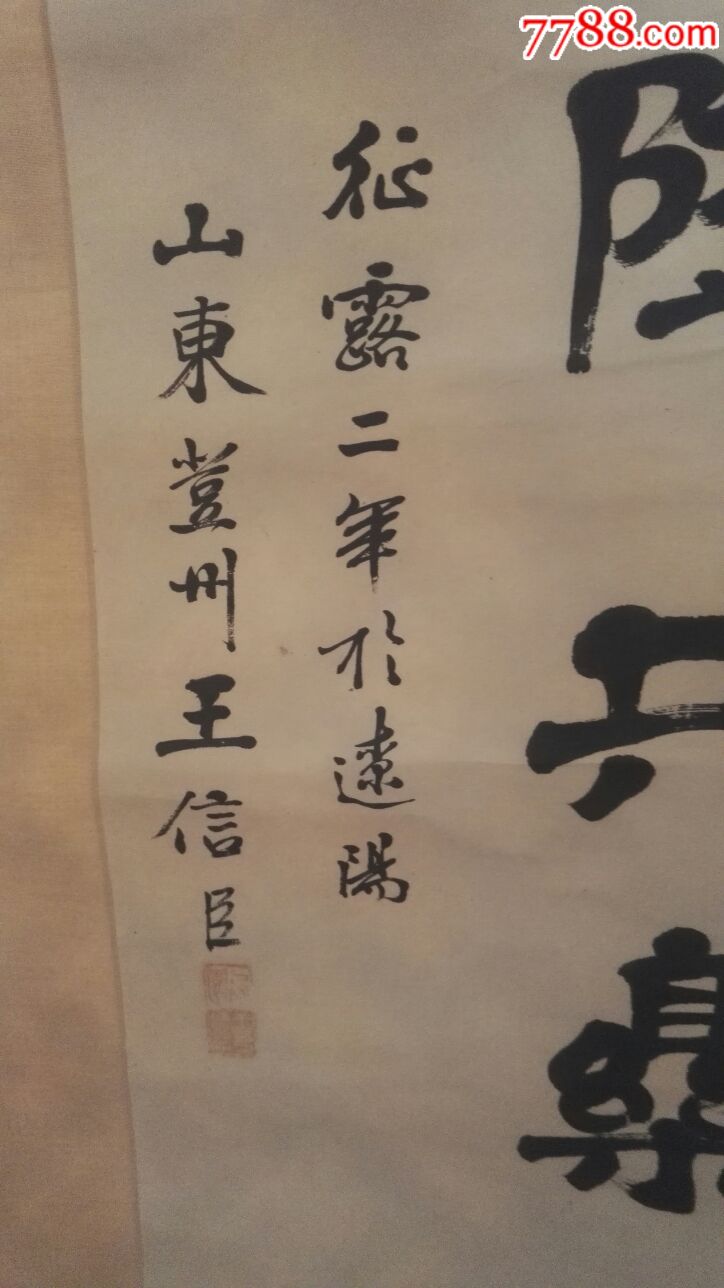 7788.com
征露二年於遼陽
山東登州王信臣